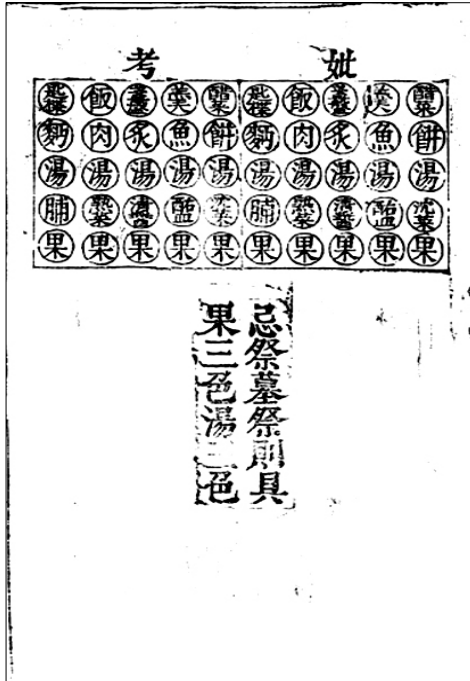 考 妣
匙楪 飯 盞盤 羹 醋菜 匙楪 飯 盞盤 羹 醋菜
麪 肉 炙 魚 餠 麪 肉 炙 魚 餠
湯 湯 湯 湯 湯 湯 湯 湯 湯 湯
脯 熟菜 淸醬 醢 沈菜 脯 熟菜 淸醬 醢 沈菜
果 果 果 果 果 果 果 果 果 果
忌祭墓祭則具
果三色湯三色